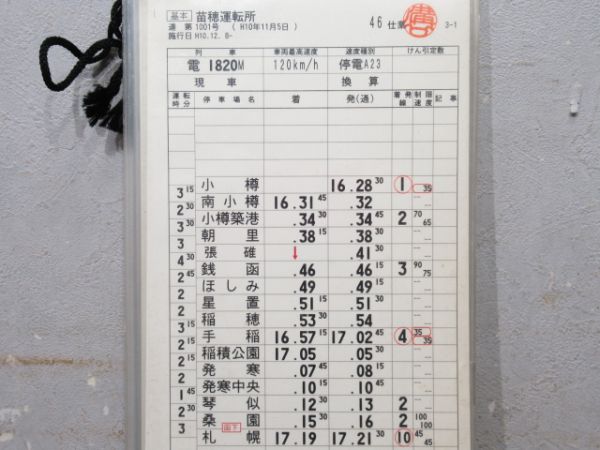 基本 苗穂運転所
達 第1001号 ( H10年11月5日 )
施行日 H10.12. 8-
46 仕業 3-1
列 車 車両最高速度 速度種別 けん引定数
電 1820M 120km/h 停電A23
現 車 換 算
運転時分 停 車 場 名 着 発(通) 着発線 制限速度 記 事
小 樽 16.28 30 1 35
3 15
南小樽 16.31 45 .32
2 30
小樽築港 .34 30 .34 45 2 70 65
3 30
朝 里 .38 15 .38 30
3
張 碓 ↓ .41 30
4 30
銭 函 .46 .46 15 3 90 75
2 45
ほしみ .49 .49 15
2
星 置 .51 15 .51 30
2
稲 穂 .53 30 .54
3 15
手 稲 16.57 15 17.02 45 4 35 35
2 15
稲積公園 17.05 .05 30
2
発 寒 .07 45 .08 15
2
発寒中央 .10 15 .10 45
1 45
琴 似 .12 30 .13 2
2 30
桑 園 .15 30 .16 2 100 100
3
札 幌 17.19 17.21 30 10 45 45